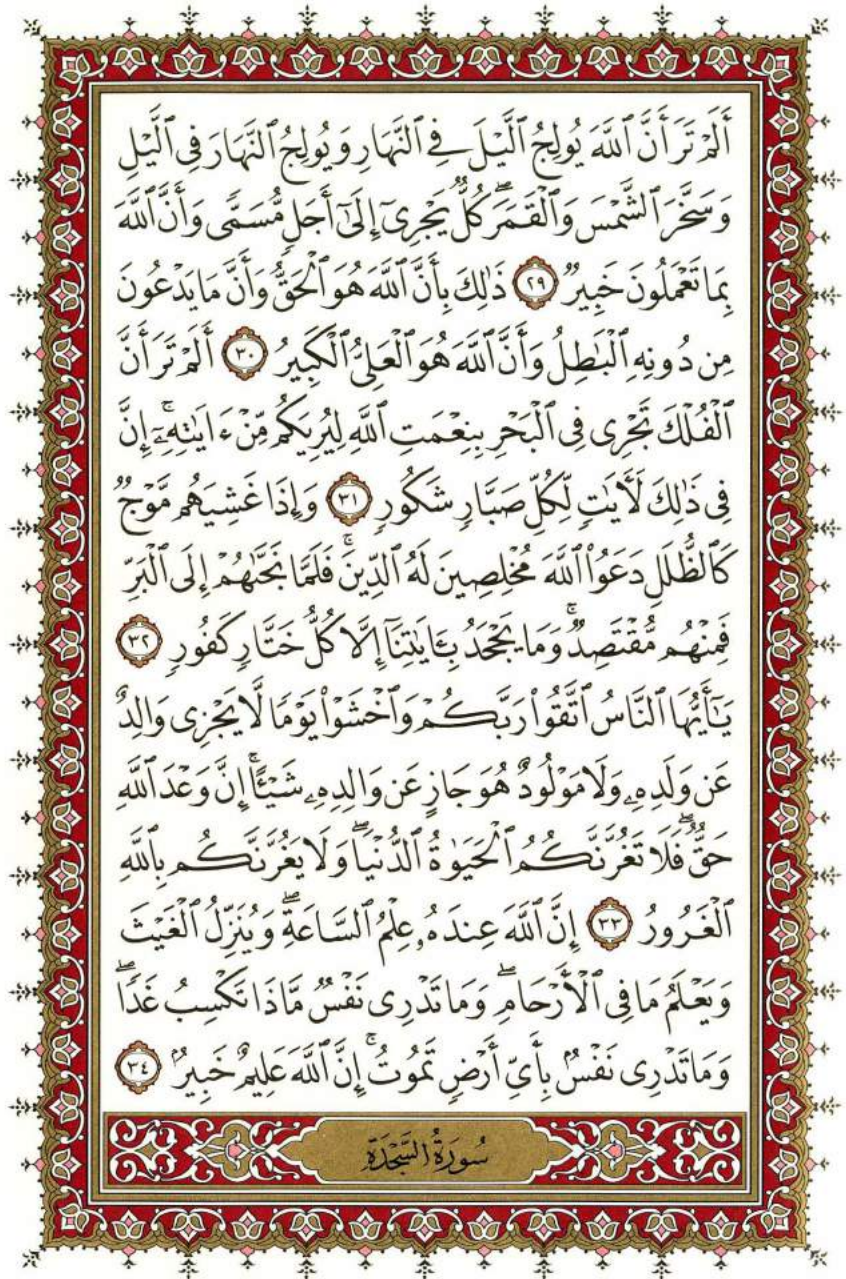 أَلَمْ تَرَ أَنَّ ٱللَّهَ يُولِجُ ٱلَّيْلَ فِى ٱلنَّهَارِ وَيُولِجُ ٱلنَّهَارَ فِى ٱلَّيْلِ
وَسَخَّرَ ٱلشَّمْسَ وَٱلْقَمَرَۖ كُلٌّ يَجْرِىٓ إِلَىٰٓ أَجَلٍ مُّسَمًّى وَأَنَّ ٱللَّهَ
بِمَا تَعْمَلُونَ خَبِيرٌ ٢٩ ذَٰلِكَ بِأَنَّ ٱللَّهَ هُوَ ٱلْحَقُّ وَأَنَّ مَا يَدْعُونَ
مِن دُونِهِ ٱلْبَٰطِلُ وَأَنَّ ٱللَّهَ هُوَ ٱلْعَلِىُّ ٱلْكَبِيرُ ٣٠ أَلَمْ تَرَ أَنَّ
ٱلْفُلْكَ تَجْرِى فِى ٱلْبَحْرِ بِنِعْمَتِ ٱللَّهِ لِيُرِيَكُم مِّنْ ءَايَٰتِهِۦٓۚ إِنَّ
فِى ذَٰلِكَ لَءَايَٰتٍ لِّكُلِّ صَبَّارٍ شَكُورٍ ٣١ وَإِذَا غَشِيَهُم مَّوْجٌ
كَٱلظُّلَلِ دَعَوُا۟ ٱللَّهَ مُخْلِصِينَ لَهُ ٱلدِّينَۚ فَلَمَّا نَجَّىٰهُمْ إِلَى ٱلْبَرِّ
فَمِنْهُم مُّقْتَصِدٌۚ وَمَا يَجْحَدُ بِـَٔايَٰتِنَآ إِلَّا كُلُّ خَتَّارٍ كَفُورٍ ٣٢
يَٰٓأَيُّهَا ٱلنَّاسُ ٱتَّقُوا۟ رَبَّكُمْ وَٱخْشَوْا۟ يَوْمًا لَّا يَجْزِى وَالِدٌ
عَن وَلَدِهِۦ وَلَا مَوْلُودٌ هُوَ جَازٍ عَن وَالِدِهِۦ شَيْـًٔاۚ إِنَّ وَعْدَ ٱللَّهِ
حَقٌّۖ فَلَا تَغُرَّنَّكُمُ ٱلْحَيَوٰةُ ٱلدُّنْيَاۖ وَلَا يَغُرَّنَّكُم بِٱللَّهِ
ٱلْغَرُورُ ٣٣ إِنَّ ٱللَّهَ عِندَهُۥ عِلْمُ ٱلسَّاعَةِۖ وَيُنَزِّلُ ٱلْغَيْثَ
وَيَعْلَمُ مَا فِى ٱلْأَرْحَامِۖ وَمَا تَدْرِى نَفْسٌ مَّاذَا تَكْسِبُ غَدًاۖ
وَمَا تَدْرِى نَفْسٌۢ بِأَىِّ أَرْضٍ تَمُوتُۚ إِنَّ ٱللَّهَ عَلِيمٌ خَبِيرٌۢ ٣٤
سُورَةُ السَّجْدَةِ